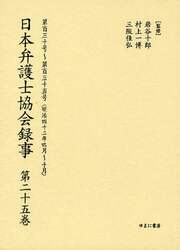 [監修]
岩谷十郎
村上一博
三阪佳弘
第百三十号～第百三十五号(明治四十二年四月～十月)
日本弁護士協会録事 第二十五巻
ゆまに書房